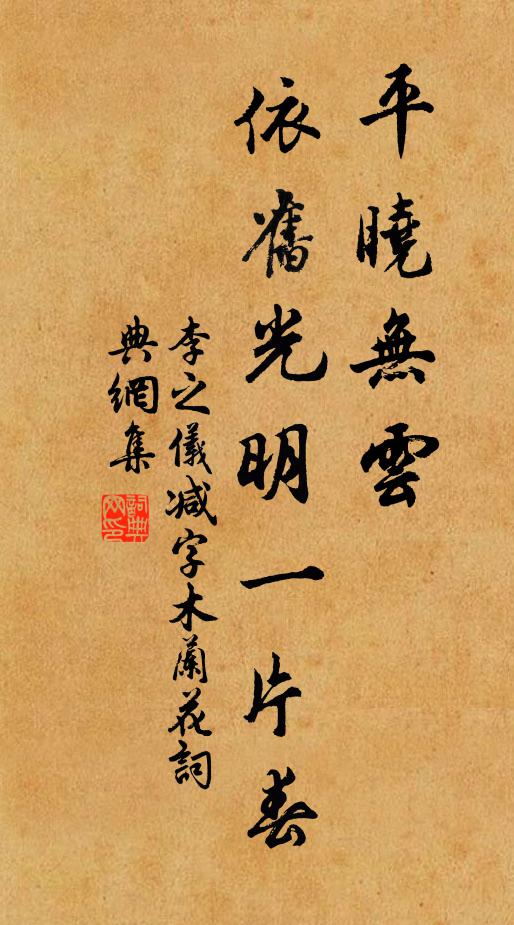 平曉無雲
依舊光明一片春
李之儀減字木蘭花詞
典網集
詞典網印